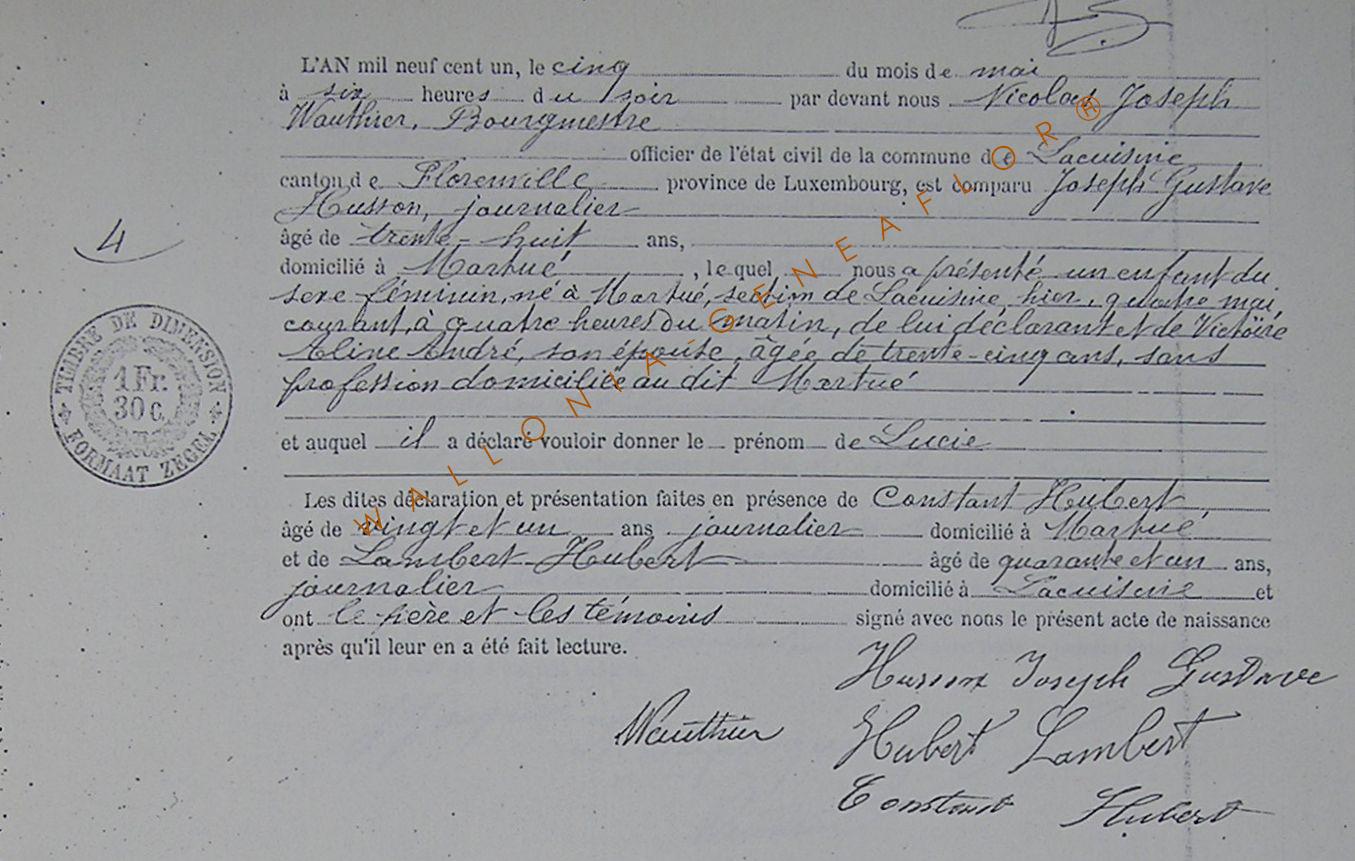 L'AN mil neuf cent un, le cinq du mois de mai
à six heures du soir par devant nous Nicolas Joseph
Wauthier, Bourgmestre
officier de l'état civil de la commune de Lacuisine
canton de Florenville province de Luxembourg, est comparu Joseph Gustave
Husson, journalier
4
âgé de trente-huit ans,
domicilié à Martué, lequel nous a présenté un enfant du
sexe féminin, né à Martué, section de Lacuisine, hier, quatre mai
courant, à quatre heures du matin, de lui déclarant et de Victoire
Aline André, son épouse, âgée de trente-cinq ans, sans
profession domiciliée au dit Martué
TIMBRE DE DIMENSION
1 Fr.
30 c.
FORMAAT ZEGEL
et auquel il a déclaré vouloir donner le prénom de Lucie
Les dites déclaration et présentation faites en présence de Constant Hubert,
âgé de vingt et un ans journalier domicilié à Martué
et de Lambert Hubert âgé de quarante et un ans,
journalier domicilié à Lacuisine et
ont le père et les témoins signé avec nous le présent acte de naissance
après qu'il leur en a été fait lecture.
Husson Joseph Gustave
Wauthier
Hubert Lambert
Constant Hubert
WALLONIA-GENEAFLOR®